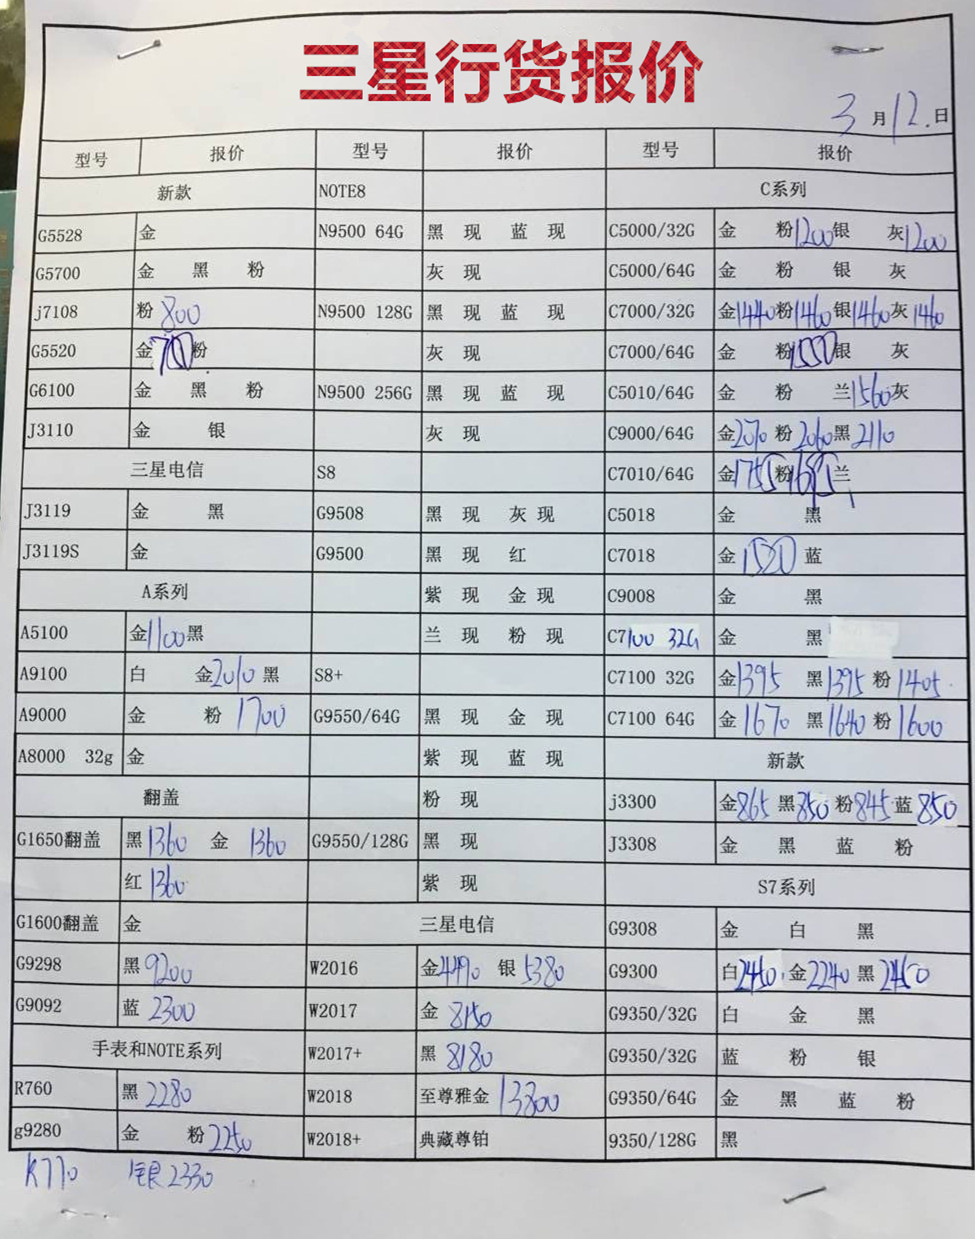 三星行货报价
3月12.日
型号 报价 型号 报价 型号 报价
新款 NOTE8 C系列
G5528 金 N9500 64G 黑 现 蓝 现 C5000/32G 金 粉1200银 灰1200
G5700 金 黑 粉 灰 现 C5000/64G 金 粉 银 灰
j7108 粉800 N9500 128G 黑 现 蓝 现 C7000/32G 金1440粉1460银1460灰1460
G5520 金700粉 灰 现 C7000/64G 金 粉1550银 灰
G6100 金 黑 粉 N9500 256G 黑 现 蓝 现 C5010/64G 金 粉 兰1560灰
J3110 金 银 灰 现 C9000/64G 金2070粉2060黑2110
三星电信 S8 C7010/64G 金 粉 兰
J3119 金 黑 G9508 黑 现 灰 现 C5018 金 黑
J3119S 金 G9500 黑 现 红 C7018 金1520蓝
A系列 紫 现 金 现 C9008 金 黑
A5100 金1100黑 兰 现 粉 现 C7100 32G 金 黑
A9100 白 金2010黑 S8+ C7100 32G 金1395 黑1395粉1405.
A9000 金 粉 1700 G9550/64G 黑 现 金 现 C7100 64G 金1670 黑1640粉1600
A8000 32g 金 紫 现 蓝 现 新款
翻盖 粉 现 j3300 金865黑850粉845蓝850
G1650翻盖 黑1360 金 1360 G9550/128G 黑 现 J3308 金 黑 蓝 粉
红1360 紫 现 S7系列
G1600翻盖 金 三星电信 G9308 金 白 黑
G9298 黑9200 W2016 金4490 银5380 G9300 白2450金2240黑2450
G9092 蓝2300 W2017 金8150 G9350/32G 白 金 黑
手表和NOTE系列 W2017+ 黑8180 G9350/32G 蓝 粉 银
R760 黑2280 W2018 至尊雅金13800 G9350/64G 金 黑 蓝 粉
g9280 金 粉2250 W2018+ 典藏尊铂 9350/128G 黑
R770 银2330